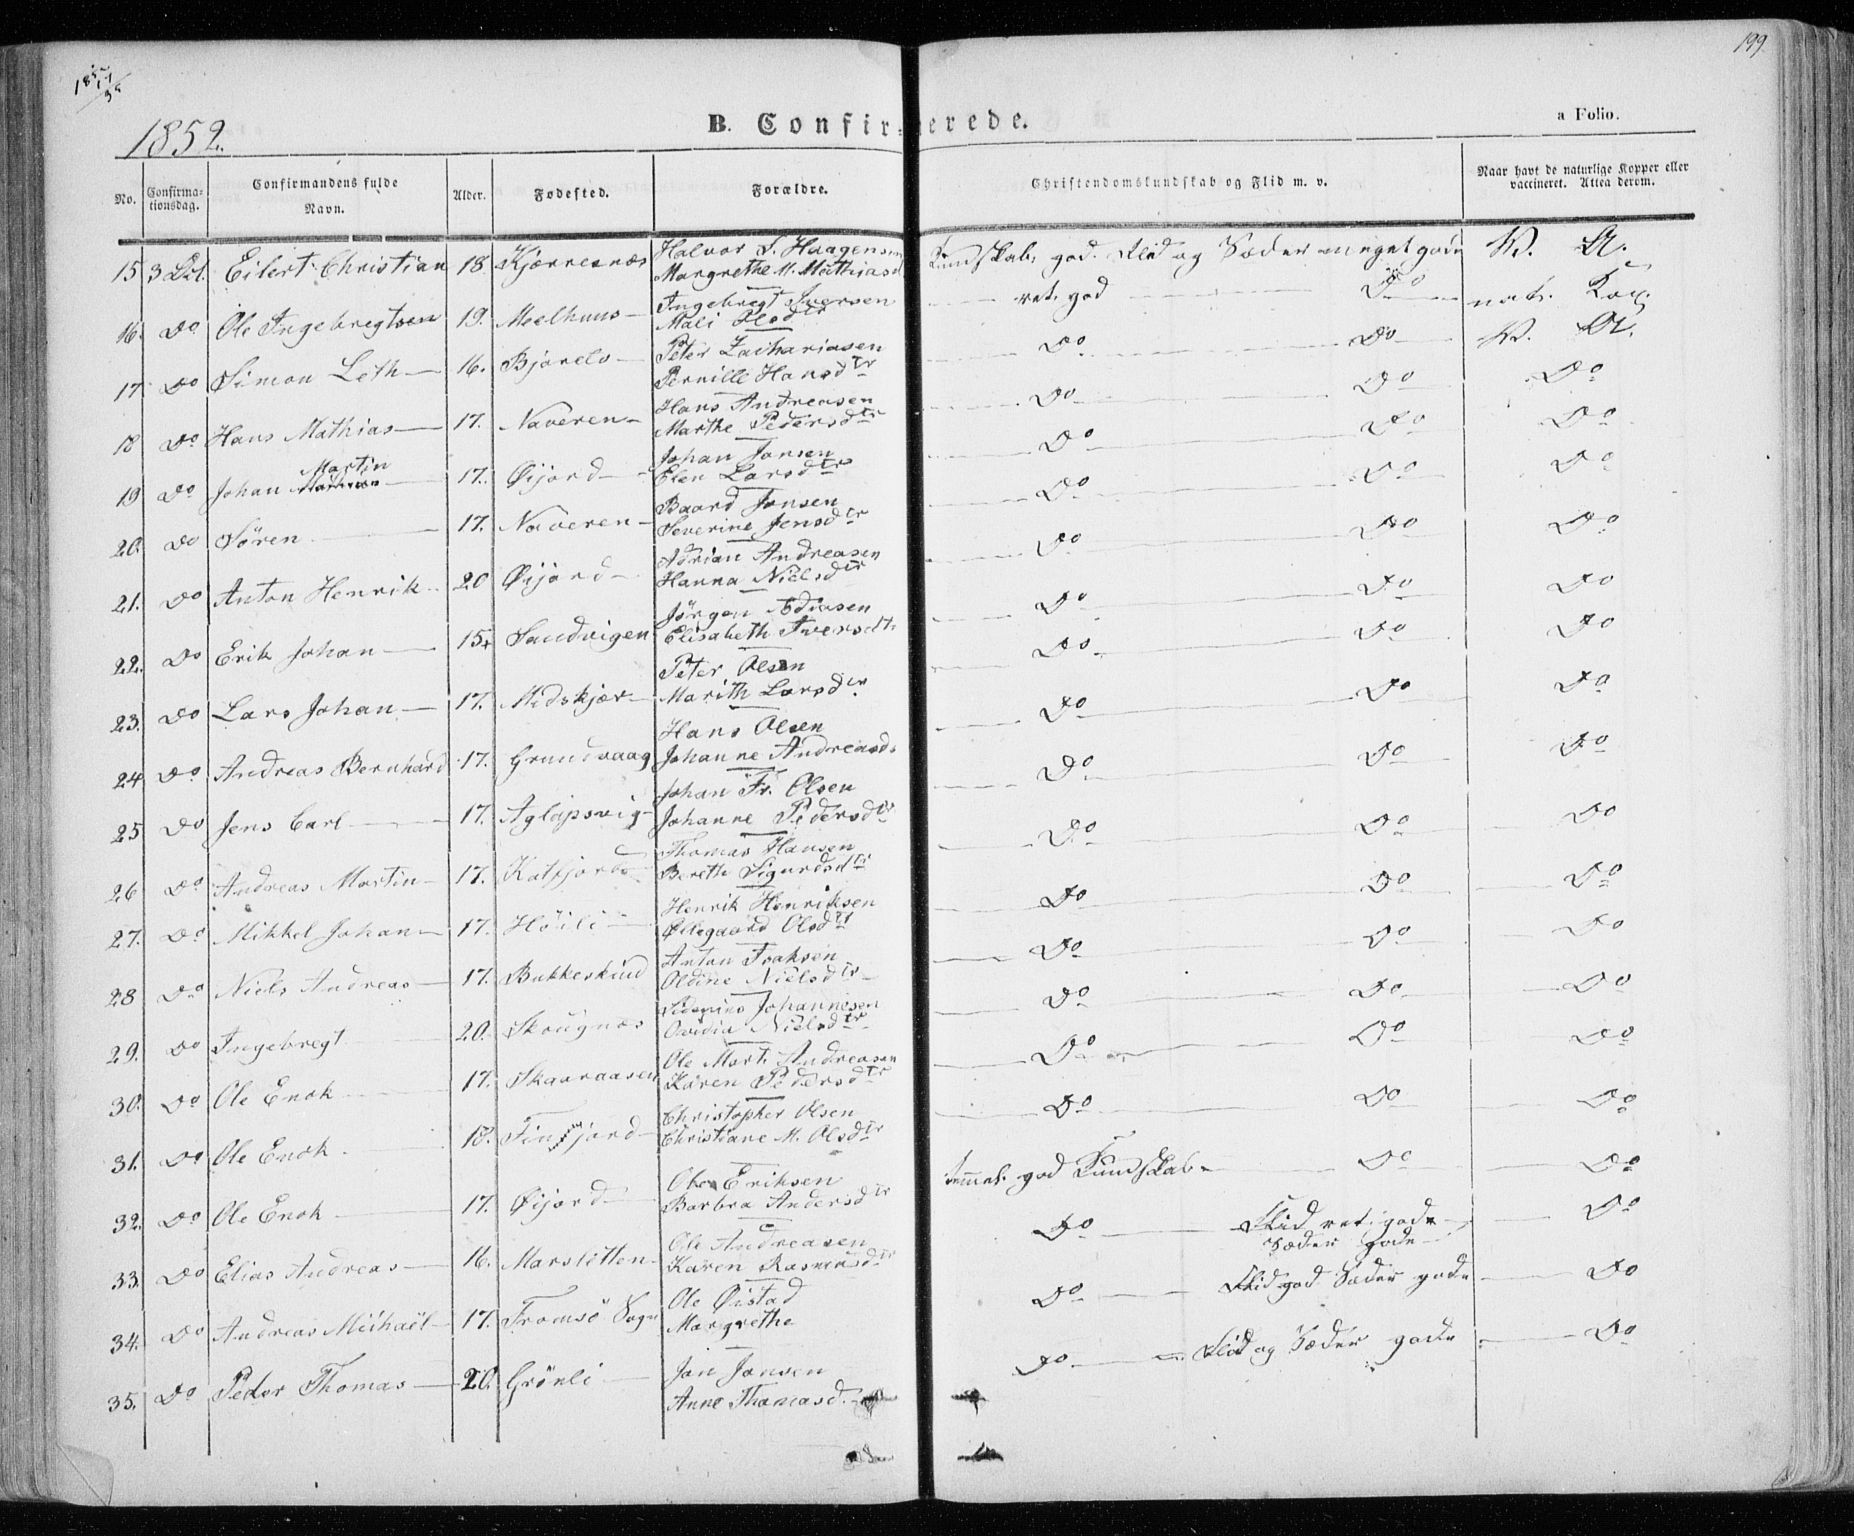 199
1852.
B. Confirmerede.
a Folio.
No.
Confirma-
tionsdag.
Confirmandens fulde
Navn.
Alder.
Fødested.
Forældre.
Christendomskundskab og Flid m. v.
Naar havt de naturlige Kopper eller
vaccineret. Attea derom.
15 3 Eilert Christian 18. Kjærresnæs Halvor S. Haagensen Kundskab god. Flid og Sæder meget gode V. A.
Margrethe M. Mathiasd
16. Do Ole Ingebregtsen 19. Meelhuus Ingebregt Iversen ret god Do nat. Kop.
Mali Olsdtr
17 Do Simon Leth 16. Bjorelv Peter Zachariasen Do Do V. A.
Pernille Hansdtr
18 Do Hans Mathias 17. Naveren Hans Andreasen Do Do Do
Marthe Pedersdtr
Martin
19 Do Johan 17. Øijord Johan Jonsen Do Do Do
Elen Larsdtr
20. Do Sören 17. Naveren Baard Jonsen Do Do Do
Severine Jensdtr
21. Do Anton Henrik 20 Øijord Adrian Andreasen Do Do Do
Hanna Nielsdtr
22. Do Erik Johan 15. Sandvigen Jörgen Do Do Do
Elisabeth Iversdtr
23. Do Lars Johan 17. Midskjær Peter Olsen Do Do Do
Marith Larsdtr
24 Do Andreas Bernhard 17. Grundvaag Hans Olsen Do Do Do
Johanne Andreasd.
25 Do Jens Carl 17. Aglapsvig Johan Fr. Olsen Do Do Do
Johanne Pedersdtr
26 Do Andreas Martin 17. Katfjord Thomas Hansen Do Do Do
Bereth Sigurdsdtr
27. Do Mikkel Johan 17. Höili Henrik Henriksen Do Do Do
Øllegaard Olsdtr
28 Do Niels Andreas 17. Bukkeskind Anton Isaksen Do Do Do
Oldine Nielsdtr
29. Do Ingebregt 20. Skougnæs Johannesen Do Do Do
Ovidia Nielsdtr
30. Do Ole Enok 17. Skaaraasen Ole Mart. Andreasen Do Do Do
Karen Pedersdtr
31. Do Ole Enok 18. Finfjord Christopher Olsen Do Do Do
Christiane M. Olsdtr
32. Do Ole Enok 17. Øijord Ole Eriksen temmel. god Kundskab Do Do
Barbra Andersdtr
33. Do Elias Andreas 16. Marsletten Ole Andreasen Do Flid ret gode Do
Sæder gode
Karen Rasmusdtr
34. Do Andreas Michaël 17. Tromsö Sogn Ole Øistad Do Flid god Sæder gode Do
Margrethe
35. Do Peder Thomas 20. Grönli Jon Jonsen Do Flid og Sæder gode Do
Anne Thomasd.